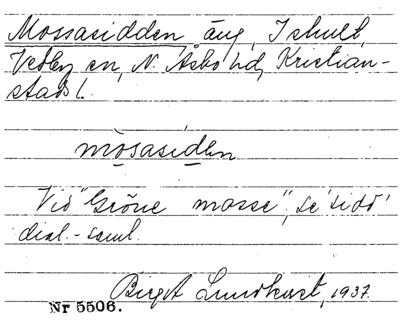 Mossasidden äng, Ishult
Vedby sn, N. Åsbo hd, Kristian-
stads l.
mòsasìden
Vid "Gröne mosse", se 'sidd'
dial.-saml.
Birgit Lundkvist, 1937.
Nr 5506.